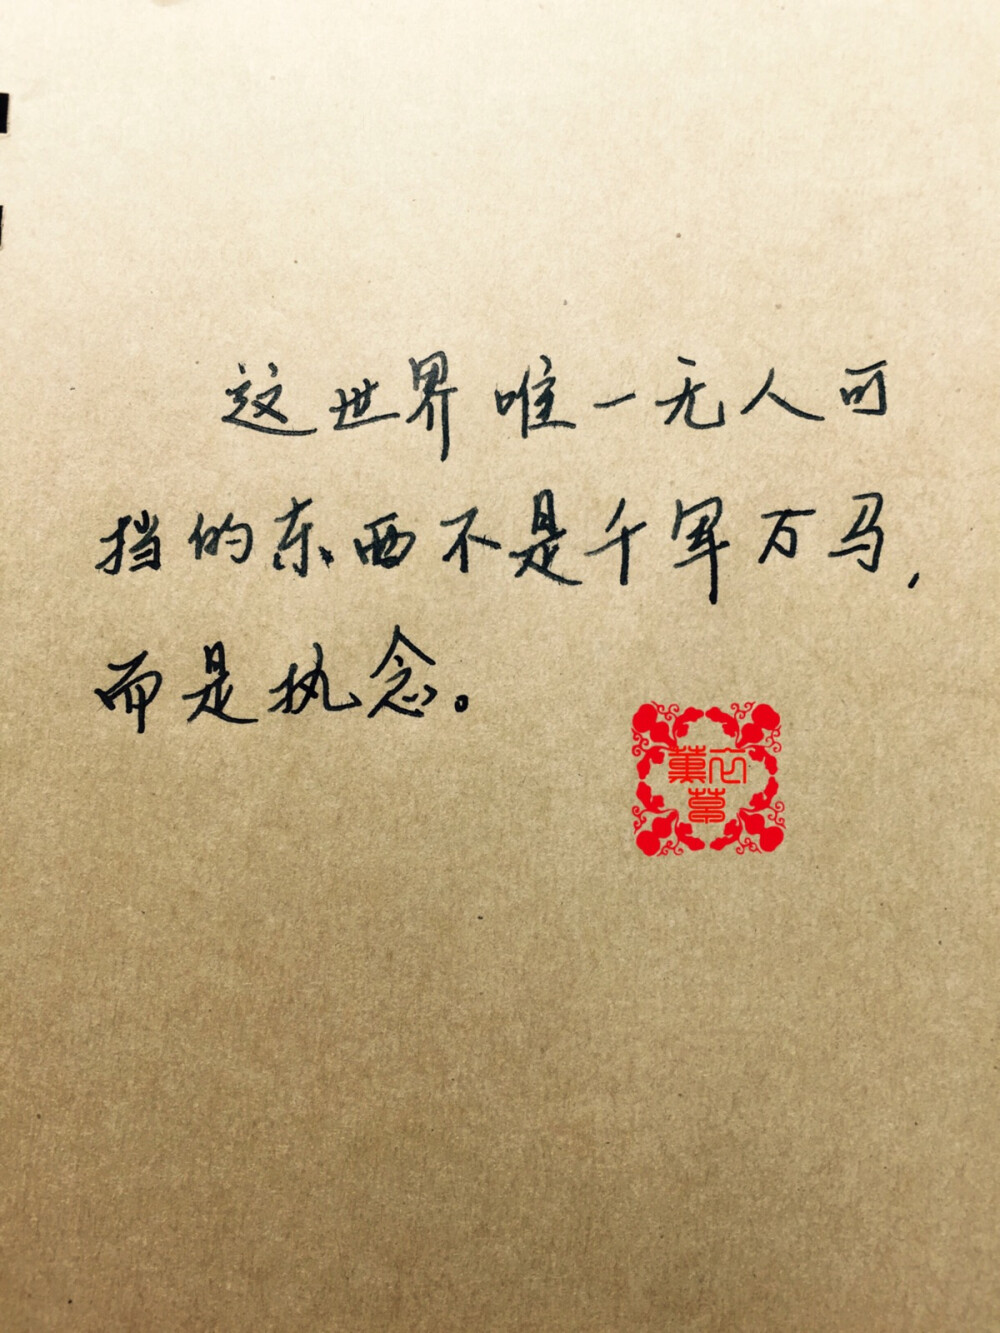 这世界唯一无人可
挡的东西不是千军万马,
而是执念。